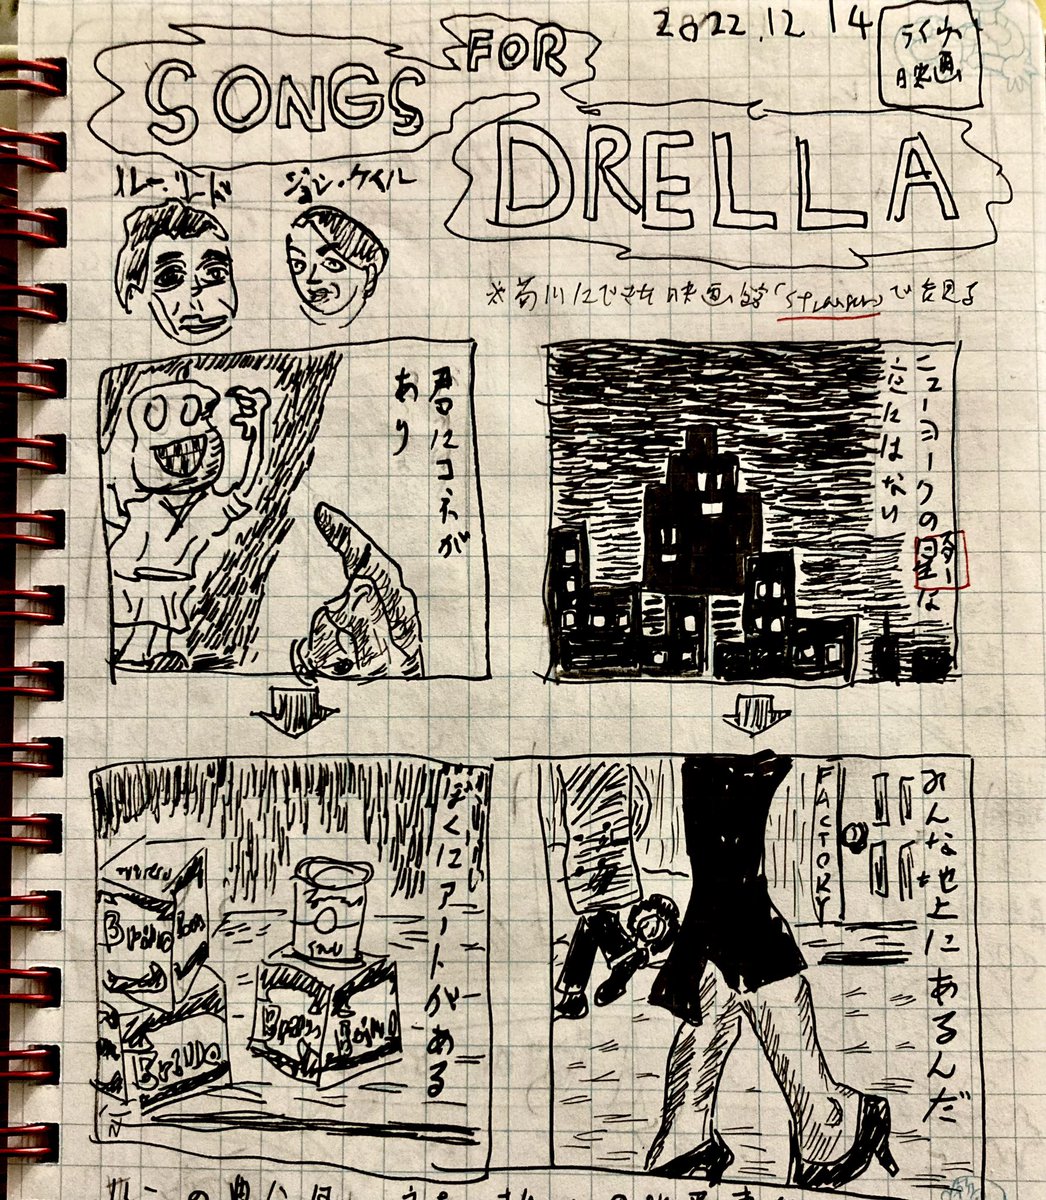 SONGS FOR DRELLA
2022.12.14
ライヴ
映画
ルー・リード
ジョン・ケイル
※菊川にできた映画館「Stranger」で観る
君にコネが
あり
ニューヨークの星は
空にはない
ぼくにアートがある
Brillo
Brillo
みんな地上にあるんだ
FACTORY